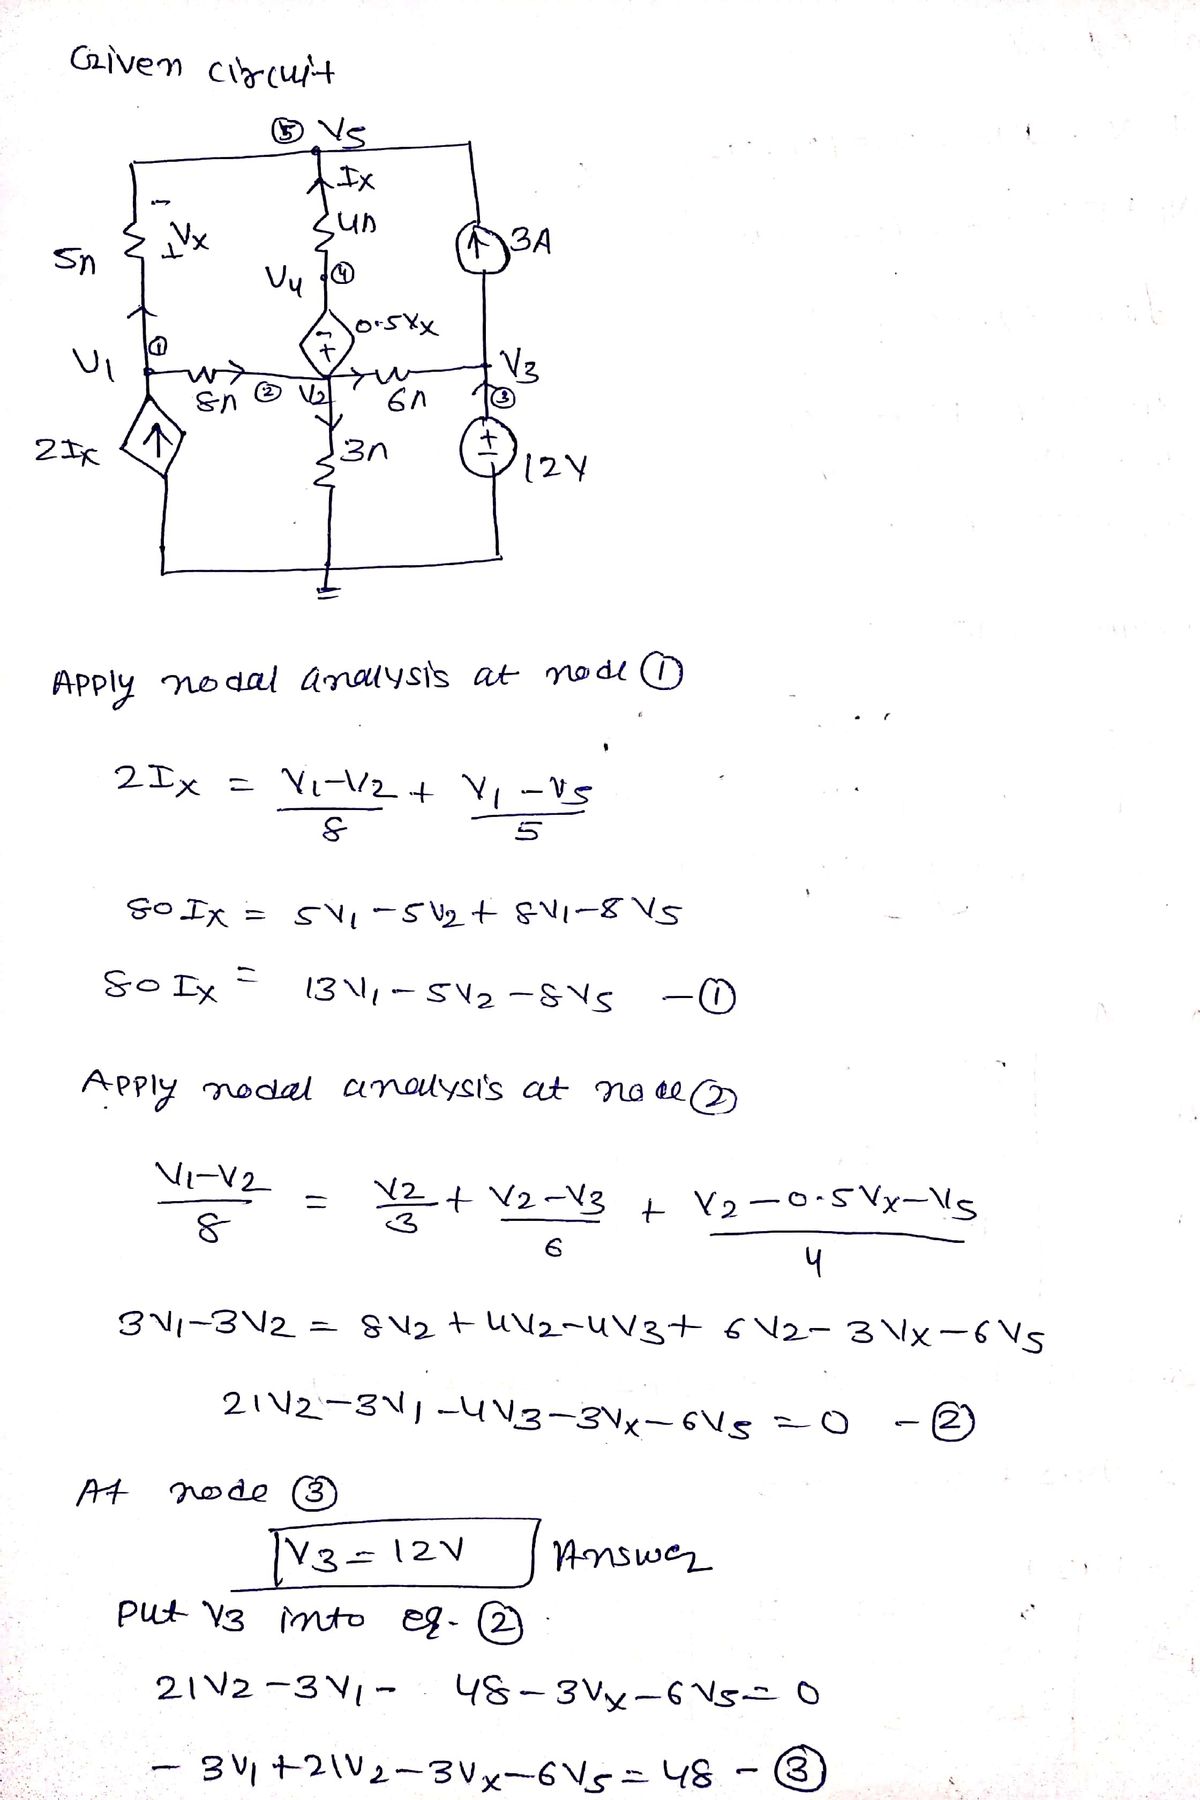 Given circuit
⑤ V5
Ix
4Ω
- Vx +
5Ω
3A
V4 ④
0.5Vx
- +
V1 ①
8Ω ② V2 6Ω
V3 ③
2Ix
3Ω
+ -
12V
Apply nodal analysis at node ①
2Ix = V1-V2/8 + V1-V5/5
80Ix = 5V1-5V2+8V1-8V5
80Ix = 13V1-5V2-8V5 -①
Apply nodal analysis at node ②
V1-V2/8 = V2/3 + V2-V3/6 + V2-0.5Vx-V5/4
3V1-3V2 = 8V2+4V2-4V3+6V2-3Vx-6V5
21V2-3V1-4V3-3Vx-6V5=0 -②
At node ③
V3=12V Answer
Put V3 into eq. ②
21V2-3V1-48-3Vx-6V5=0
-3V1+21V2-3Vx-6V5=48 -③